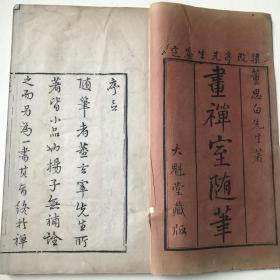 董思白先生著
畫禪室隨筆
大魁堂藏版
序言
随筆者董玄宰先生所
著皆小品如楊子無補詮
之而另為一書其旨終於禪